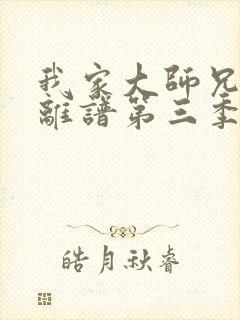 我家大師兄
離譜第三季
皓月秋睿